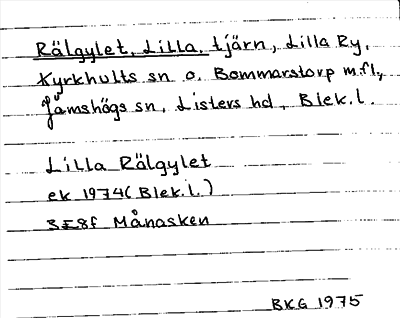 Rälgylet, Lilla, tjärn, Lilla Ry,
Kyrkhults sn o. Bommarstorp m.fl.,
Jämshögs sn, Listers hd, Blek.l.
Lilla Rälgylet
ek 1974 (Blek.l.)
3E8f Månasken
BKG 1975